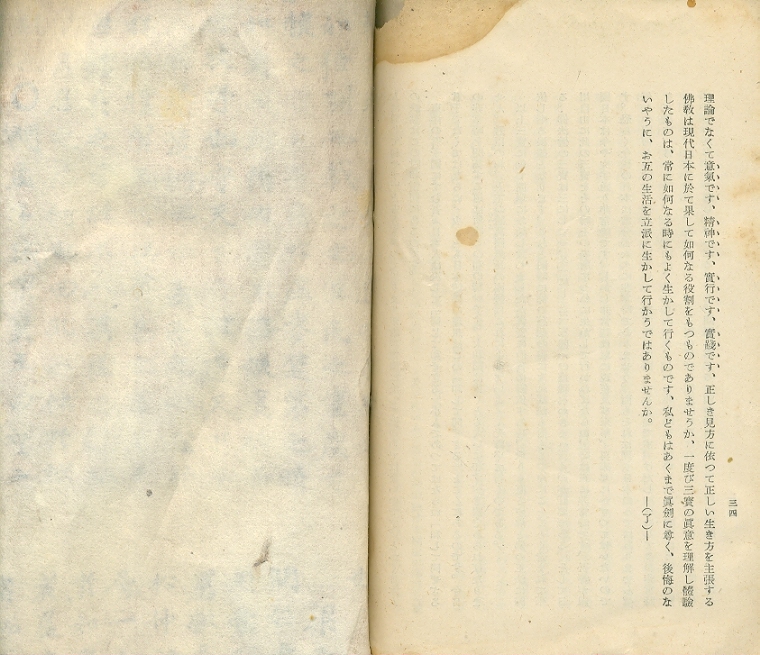 理論でなくて意氣です、精神です、實行です、實踐です、正しき見方に依つて正しい生き方を主張する
佛敎は現代日本に於て果して如何なる役割をもつものでありませうか、一度び三寶の眞意を理解し體驗
したものは、常に如何なる時にもよく生かして行くものです、私どもはあくまで眞劍に尊く、後悔のな
いやうに、お互の生活を立派に生かして行かうではありませんか。
―(了)―
三四